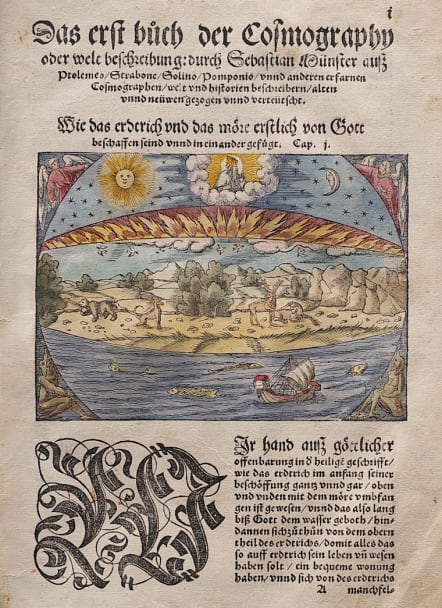 j
Das erst bůch der Cosmography
oder welt beschreibung: durch Sebastian Münster auß
Ptolemeo/Strabone/Solino/Pomponio/vnnd anderen erfarnen
Cosmographen/welt vnd historien beschreibern/alten
vnnd neüwen gezogen vnnd verteütscht.
Wie das erdtrich vnd das möre erstlich von Gott
beschaffen seind vnnd in einander gefügt. Cap. j.
WIr hand auß göttlicher
offenbarung in d heiligē geschrifft/
wie das erdtrich im anfang seiner
beschöffung gantz vnnd gar/oben
vnd vnden mit dem möre vmbfan
gen ist gewesen/vnnd das also lang
biß Gott dem wasser geboth/hin-
dannen sich zů thůn von dem obern
theil des erdtrichs/domit alles das
so auff erdtrich sein leben vn̄ wesen
haben solt/ein bequeme wonung
haben/vnnd sich von des erdtrichs
A manchfel-